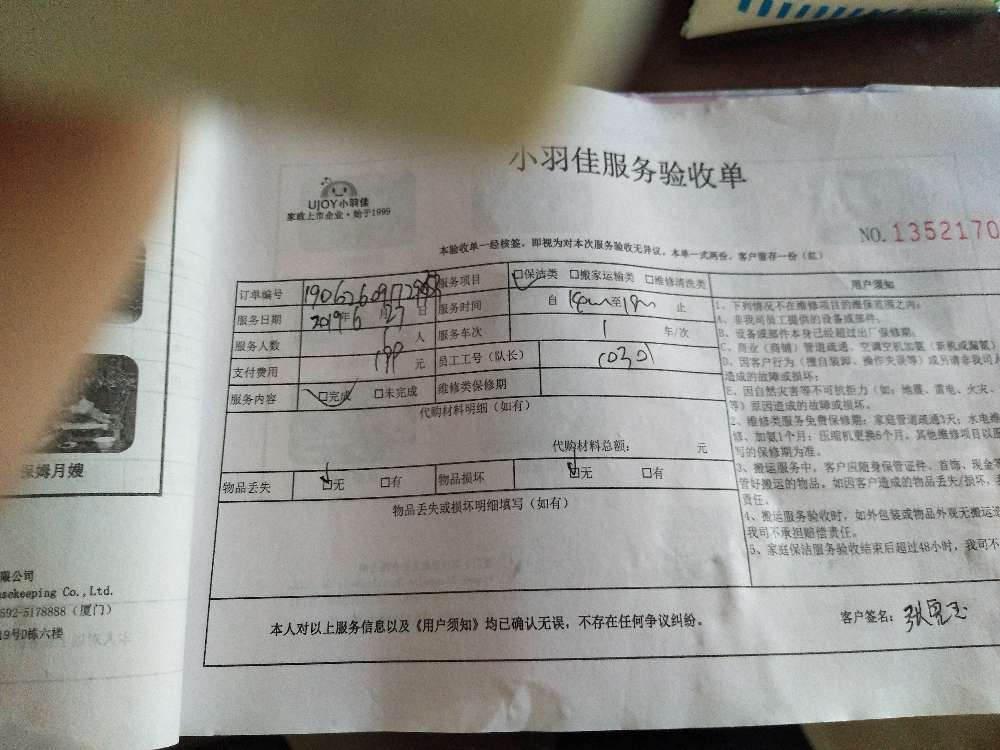 小羽佳服务验收单
UJOY小羽佳
家政上市企业·始于1999
NO.1352170
本验收单一经核签,即视为对本次服务验收无异议,本单一式两份,客户留存一份(红)
订单编号 服务项目 □保洁类 □搬家运输类 □维修清洗类
服务日期 2019年6月27日 服务时间 自 至 止
服务人数 人 服务车次 1 车/次
支付费用 199 元 员工工号(队长)
服务内容 □完成 □未完成 维修类保修期
代购材料明细(如有)
代购材料总额: 元
物品丢失 □无 □有 物品损坏 □无 □有
物品丢失或损坏明细填写(如有)
本人对以上服务信息以及《用户须知》均已确认无误,不存在任何争议纠纷。
客户签名:
用户须知
1、下列情况不在维修项目的维保范围之内:
A、非我司员工提供的设备或部件。
B、设备或部件本身已经超过出厂保修期;
C、商业(商铺)管道疏通、空调空机加氨(拆机或漏氨)
D、因客户行为(擅自装卸、操作失误等)或另请非我司
造成的故障或损坏;
E、因自然灾害等不可抗拒力(如:地震、雷电、火灾、
等)原因造成的故障或损坏。
2、维修类服务免费保修期:家庭管道疏通3天;水电维
修、加氨1个月;压缩机更换6个月。其他维修项目以服
写的保修期为准。
3、搬运服务中,客户应随身保管证件、首饰、现金等
管好搬运的物品。如因客户造成的物品丢失/损坏,我
责任。
4、搬运服务验收时,如外包装或物品外观无搬运
我司不承担赔偿责任。
5、家庭保洁服务验收结束后超过48小时,我司不
保姆月嫂
限公司
usekeeping Co.,Ltd.
592-5178888(厦门)
19号D栋六楼